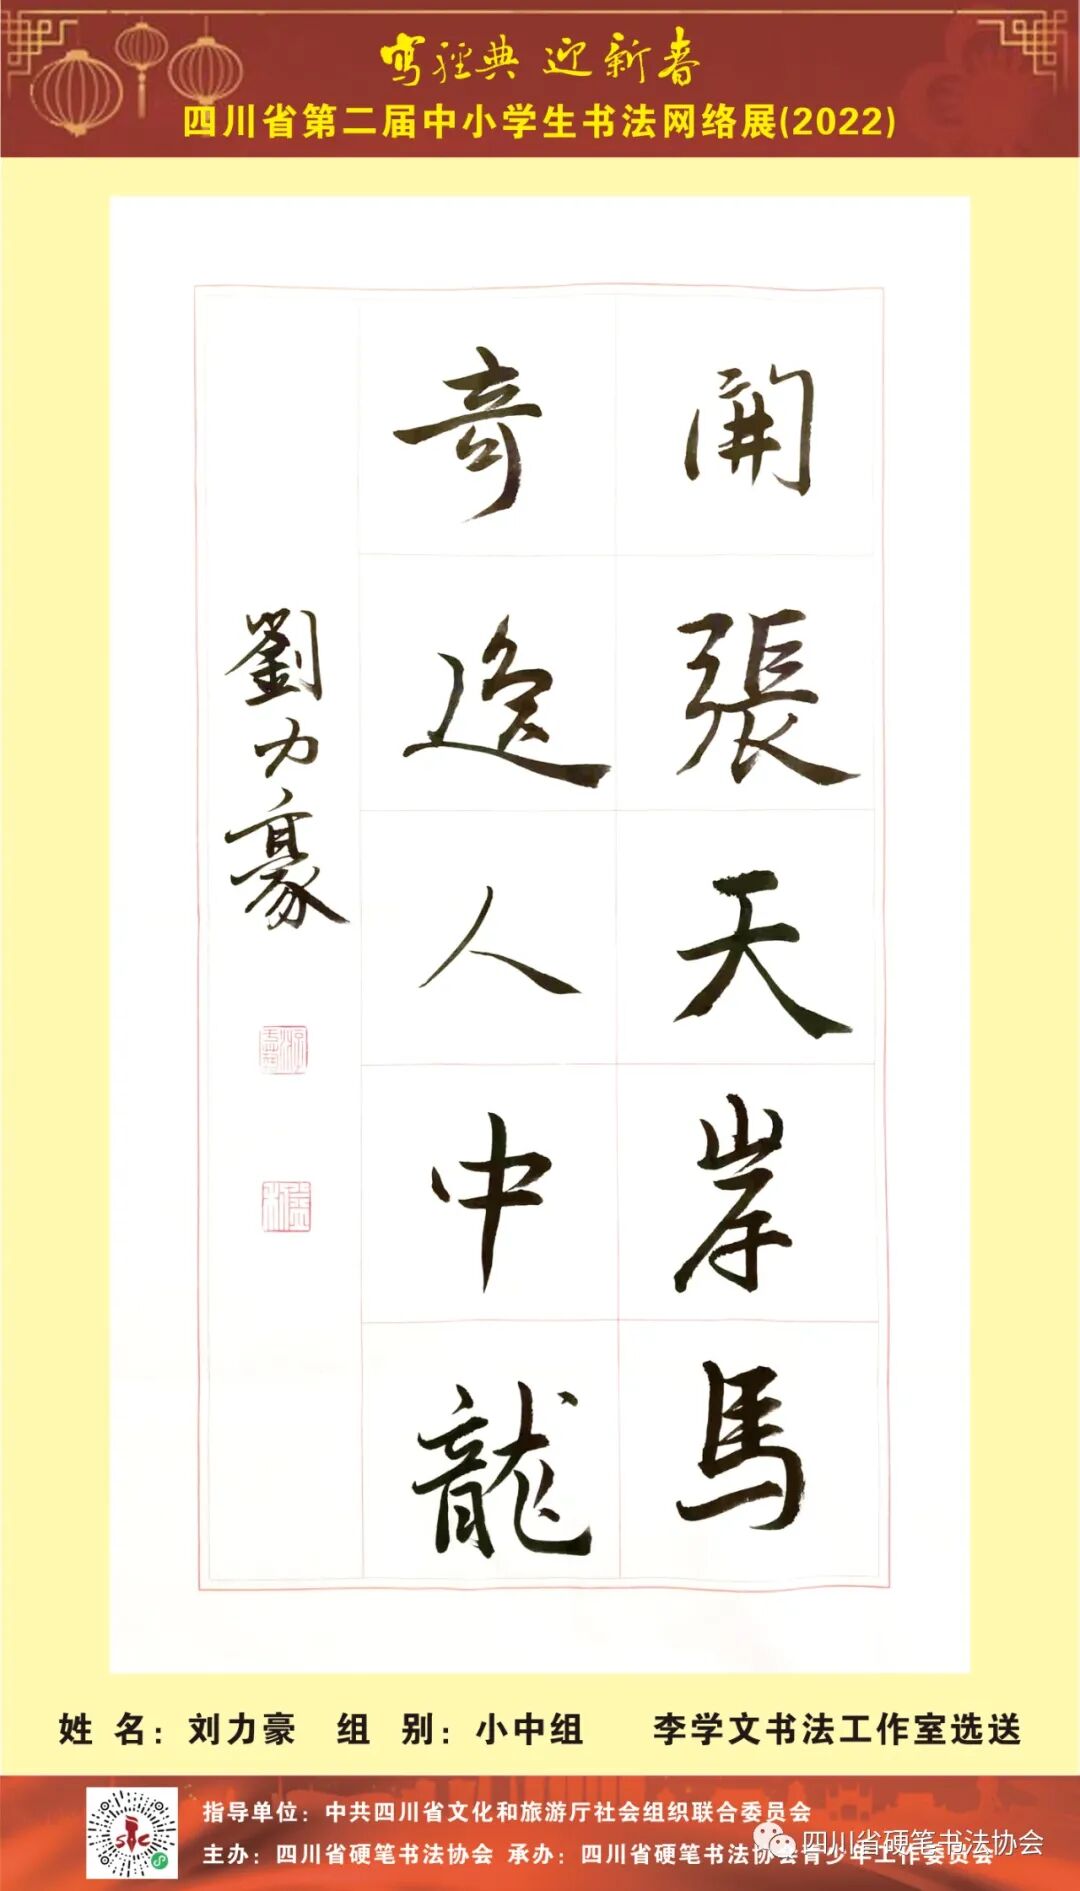 寫經典 迎新春
四川省第二届中小学生书法网络展(2022)
開張天岸馬
奇逸人中龍
劉力豪
姓 名：刘力豪 组 别：小中组 李学文书法工作室选送
指导单位：中共四川省文化和旅游厅社会组织联合委员会
主办：四川省硬笔书法协会 承办：四川省硬笔书法协会青少年工作委员会
四川省硬笔书法协会